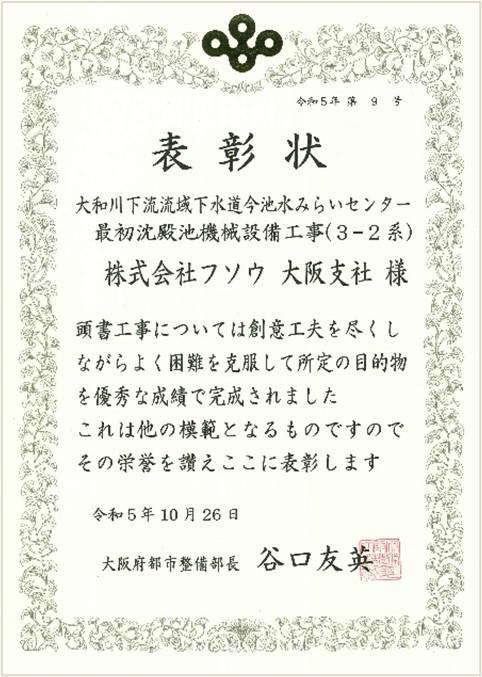 令和5年 第 9 号
表彰状
大和川下流流域下水道今池水みらいセンター
最初沈殿池機械設備工事(3-2系)
株式会社フソウ 大阪支社 様
頭書工事については創意工夫を尽くし
ながらよく困難を克服して所定の目的物
を優秀な成績で完成されました
これは他の模範となるものですので
その栄誉を讃えここに表彰します
令和5年10月26日
大阪府都市整備部長 谷口友英